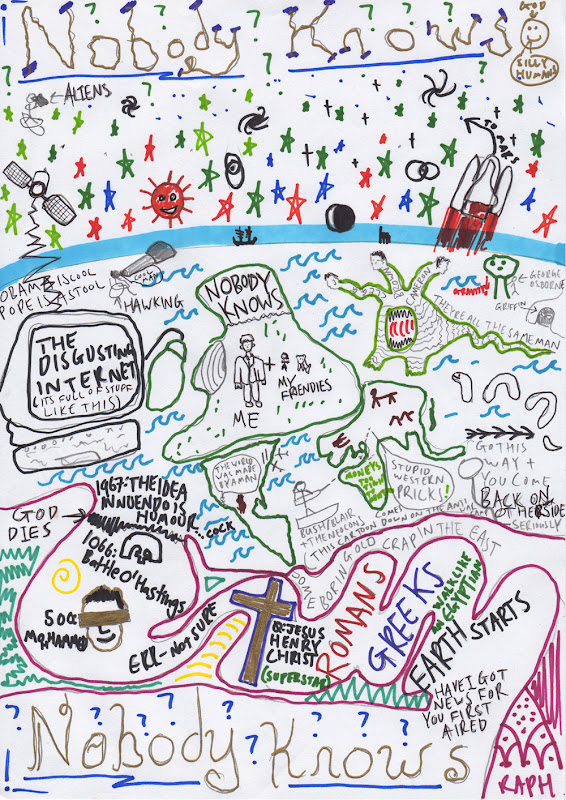 Nobody Knows
GOD
SILLY
HUMANS
ALIENS
TO MARS
OBAMA IS COOL
POPE IS A STOOL
HAWKING
NOBODY
KNOWS
BROWN
CAMERON
GRAVITY!
GEORGE
OSBORNE
GRIFFIN
THEY'RE ALL THE SAME MAN
THE
DISGUSTING
INTERNET
(ITS FULL OF STUFF
LIKE THIS)
ME
+
MY
FRENDIES
THE WORLD
WAS MADE
BY A MAN
STUPID
WESTERN
PRICK!
GO THIS
WAY +
YOU COME
BACK ON
OTHERSIDE
SERIOUSLY
BUSH/BLAIR
+ THE NEOCONS
(THIS CARTOON COMES DOWN ON THE ANTI WAR
GOD
DIES
1967: THE IDEA
INNUENDO IS
HUMOUR...
COCK
1066:
Battle O'Hastings
500:
MOHAMMED
ERR-NOT SURE
SOME BORING OLD CRAP IN THE EAST
0: JESUS
HENRY
CHRIST
(SUPERSTAR)
ROMANS
GREEKS
WARLIKE
EGYPTIANS
EARTH STARTS
HAVE I GOT
NEWS FOR
YOU FIRST
AIRED
Nobody Knows
KAPH